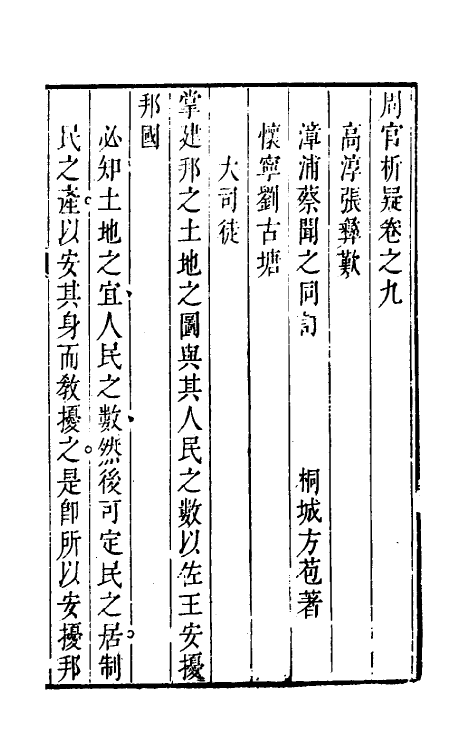 周官析疑卷之九
高淳張彝歎
漳浦蔡聞之同訂
桐城方苞著
懷寧劉古塘
大司徒
掌建邦之土地之圖與其人民之數以佐王安擾
邦國
必知土地之宜人民之數然後可定民之居制
民之產以安其身而教擾之是卽所以安擾邦